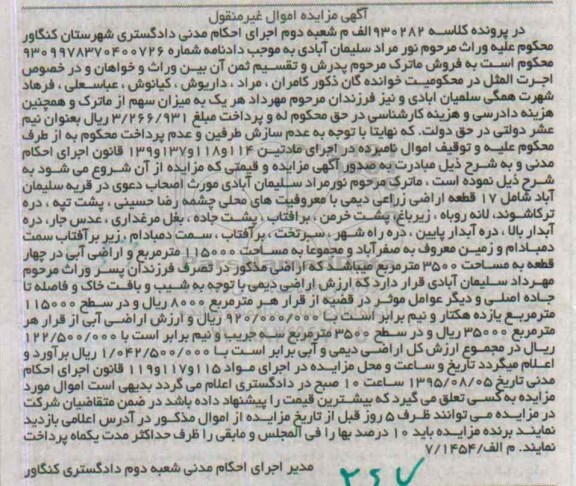 آگهی مزایده اموال غیرمنقول
در پرونده کلاسه ۹۳۰۲۸۲الف م شعبه دوم اجرای احکام مدنی دادگستری شهرستان کنگاور
محکوم علیه وراث مرحوم نور مراد سلیمان آبادی به موجب دادنامه شماره ۹۳۰۹۹۷۸۳۷۰۴۰۰۷۲۶
محکوم است به فروش ماترک مرحوم پدرش و تقسیم ثمن آن بین وراث و خواهان و در خصوص
اجرت المثل در محکومیت خوانده گان ذکور کامران ، مراد ، داریوش ، کیانوش ، عباسعلی ، فرهاد
شهرت همگی سلمیان ابادی و نیز فرزندان مرحوم مهرداد هر یک به میزان سهم از ماترک و همچنین
هزینه دادرسی و هزینه کارشناسی در حق محکوم له و پرداخت مبلغ ۳/۲۶۶/۹۳۱ ریال بعنوان نیم
عشر دولتی در حق دولت. که نهایتا با توجه به عدم سازش طرفین و عدم پرداخت محکوم به از طرف
محکوم علیه و توقیف اموال نامبرده در اجرای مادتین ۱۱۴و۱۱۸و۱۳۷و۱۳۹ قانون اجرای احکام
مدنی و به شرح ذیل مبادرت به صدور آگهی مزایده و قیمتی که مزایده از آن شروع می شود به
شرح ذیل نموده است ، ماترک مرحوم نورمراد سلیمان آبادی مورث اصحاب دعوی در قریه سلیمان
آباد شامل ۱۷ قطعه اراضی زراعی دیمی با معروفیت های محلی چشمه رضا حسینی ، پشت تپه ، دره
ترکاشوند، لانه روباه ، زیرباغ، پشت خرمن ، بر آفتاب ، پشت جاده ، بغل مرغداری ، عدس جار، دره
آبدار بالا ، دره آبدار پایین ، دره راه شهر ، سرتخت ، بر آفتاب ، سمت دمبادام ، زیر بر آفتاب سمت
دمبادام و زمین معروف به صفرآباد و مجموعا به مساحت ۱۱۵۰۰۰ مترمربع و اراضی آبی در چهار
قطعه به مساحت ۳۵۰۰ مترمربع میباشد که اراضی مذکور در تصرف فرزندان پسر وراث مرحوم
مهرداد سلیمان آبادی قرار دارد که ارزش اراضی دیمی با توجه به شیب و بافت خاک و فاصله تا
جاده اصلی و دیگر عوامل موثر در قضیه از قرار هر مترمربع ۸۰۰۰ ریال و در سطح ۱۱۵۰۰۰
مترمربع یازده هکتار و نیم برابر است با ۹۲۰/۰۰۰/۰۰۰ ریال و ارزش اراضی آبی از قرار هر
مترمربع ۳۵۰۰۰ ریال و در سطح ۳۵۰۰ مترمربع سه جریب و نیم برابر است با ۱۲۲/۵۰۰/۰۰۰
ریال در مجموع ارزش کل اراضی دیمی و آبی برابر است با ۱/۰۴۲/۵۰۰/۰۰۰ ریال برآورد و
اعلام میگردد تاریخ و ساعت و محل مزایده در اجرای مواد ۱۱۵و۱۱۷و۱۱۹ قانون اجرای احکام
مدنی تاریخ ۱۳۹۵/۰۸/۰۵ ساعت ۱۰ صبح در دادگستری اعلام می گردد بدیهی است اموال مورد
مزایده به کسی تعلق می گیرد که بیشترین قیمت را پیشنهاد داده باشد در ضمن متقاضیان شرکت
در مزایده می توانند ظرف ۵ روز قبل از تاریخ مزایده از اموال مذکور در آدرس اعلامی بازدید
نمایند برنده مزایده باید ۱۰ درصد بها را فی المجلس و مابقی را ظرف حداکثر مدت یکماه پرداخت
نمایند. م الف/۷/۱۴۵۴
مدیر اجرای احکام مدنی شعبه دوم دادگستری کنگاور